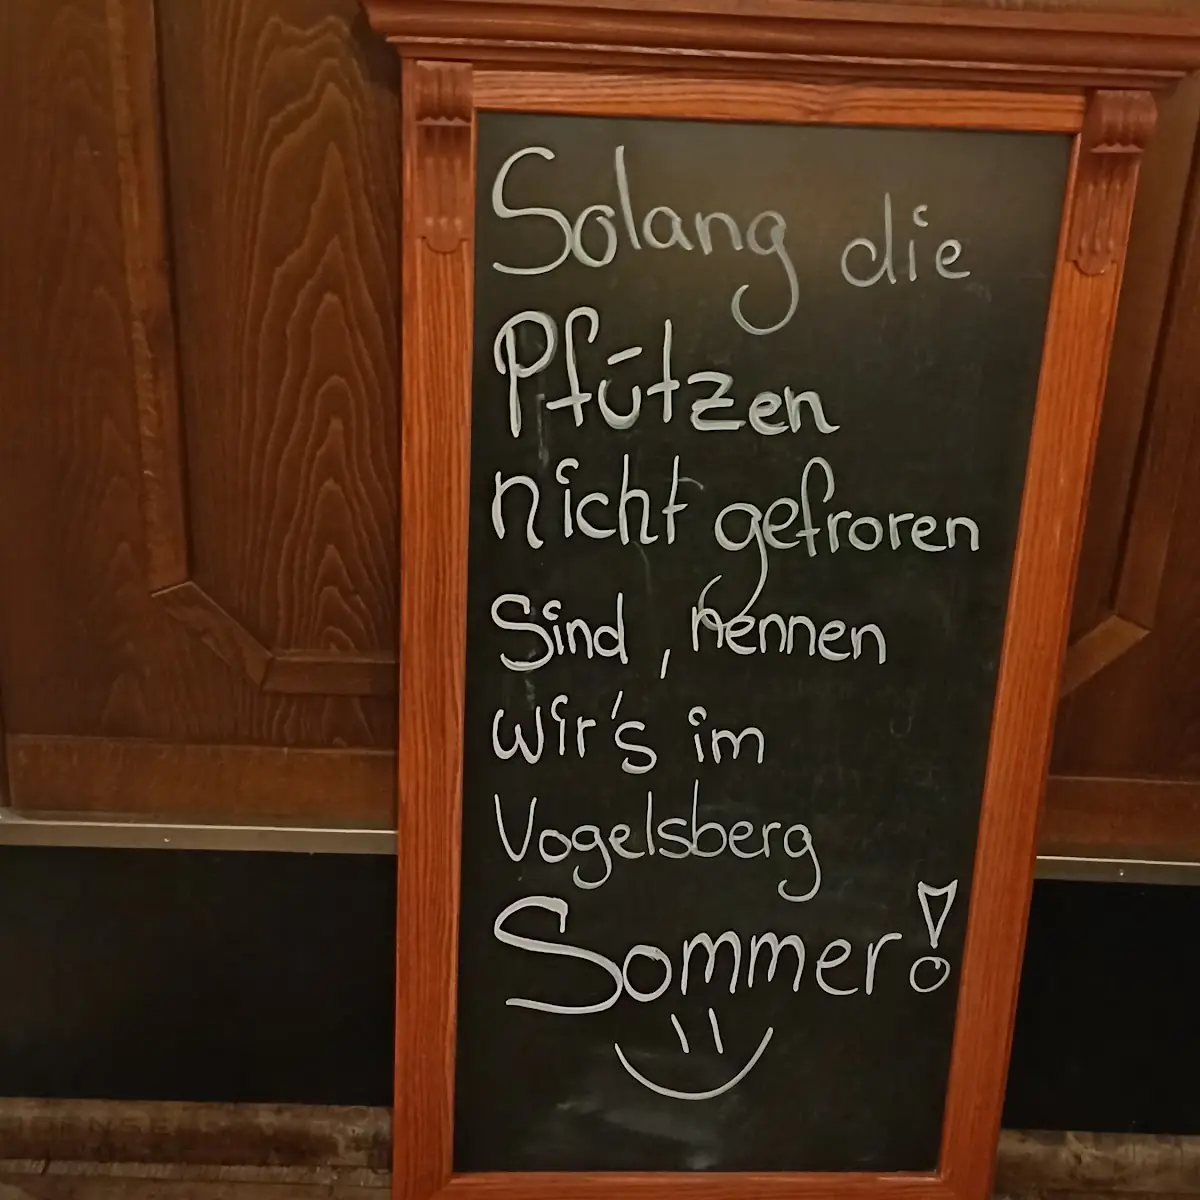 Solang die
Pfützen
nicht gefroren
Sind, nennen
wir's im
Vogelsberg
Sommer!